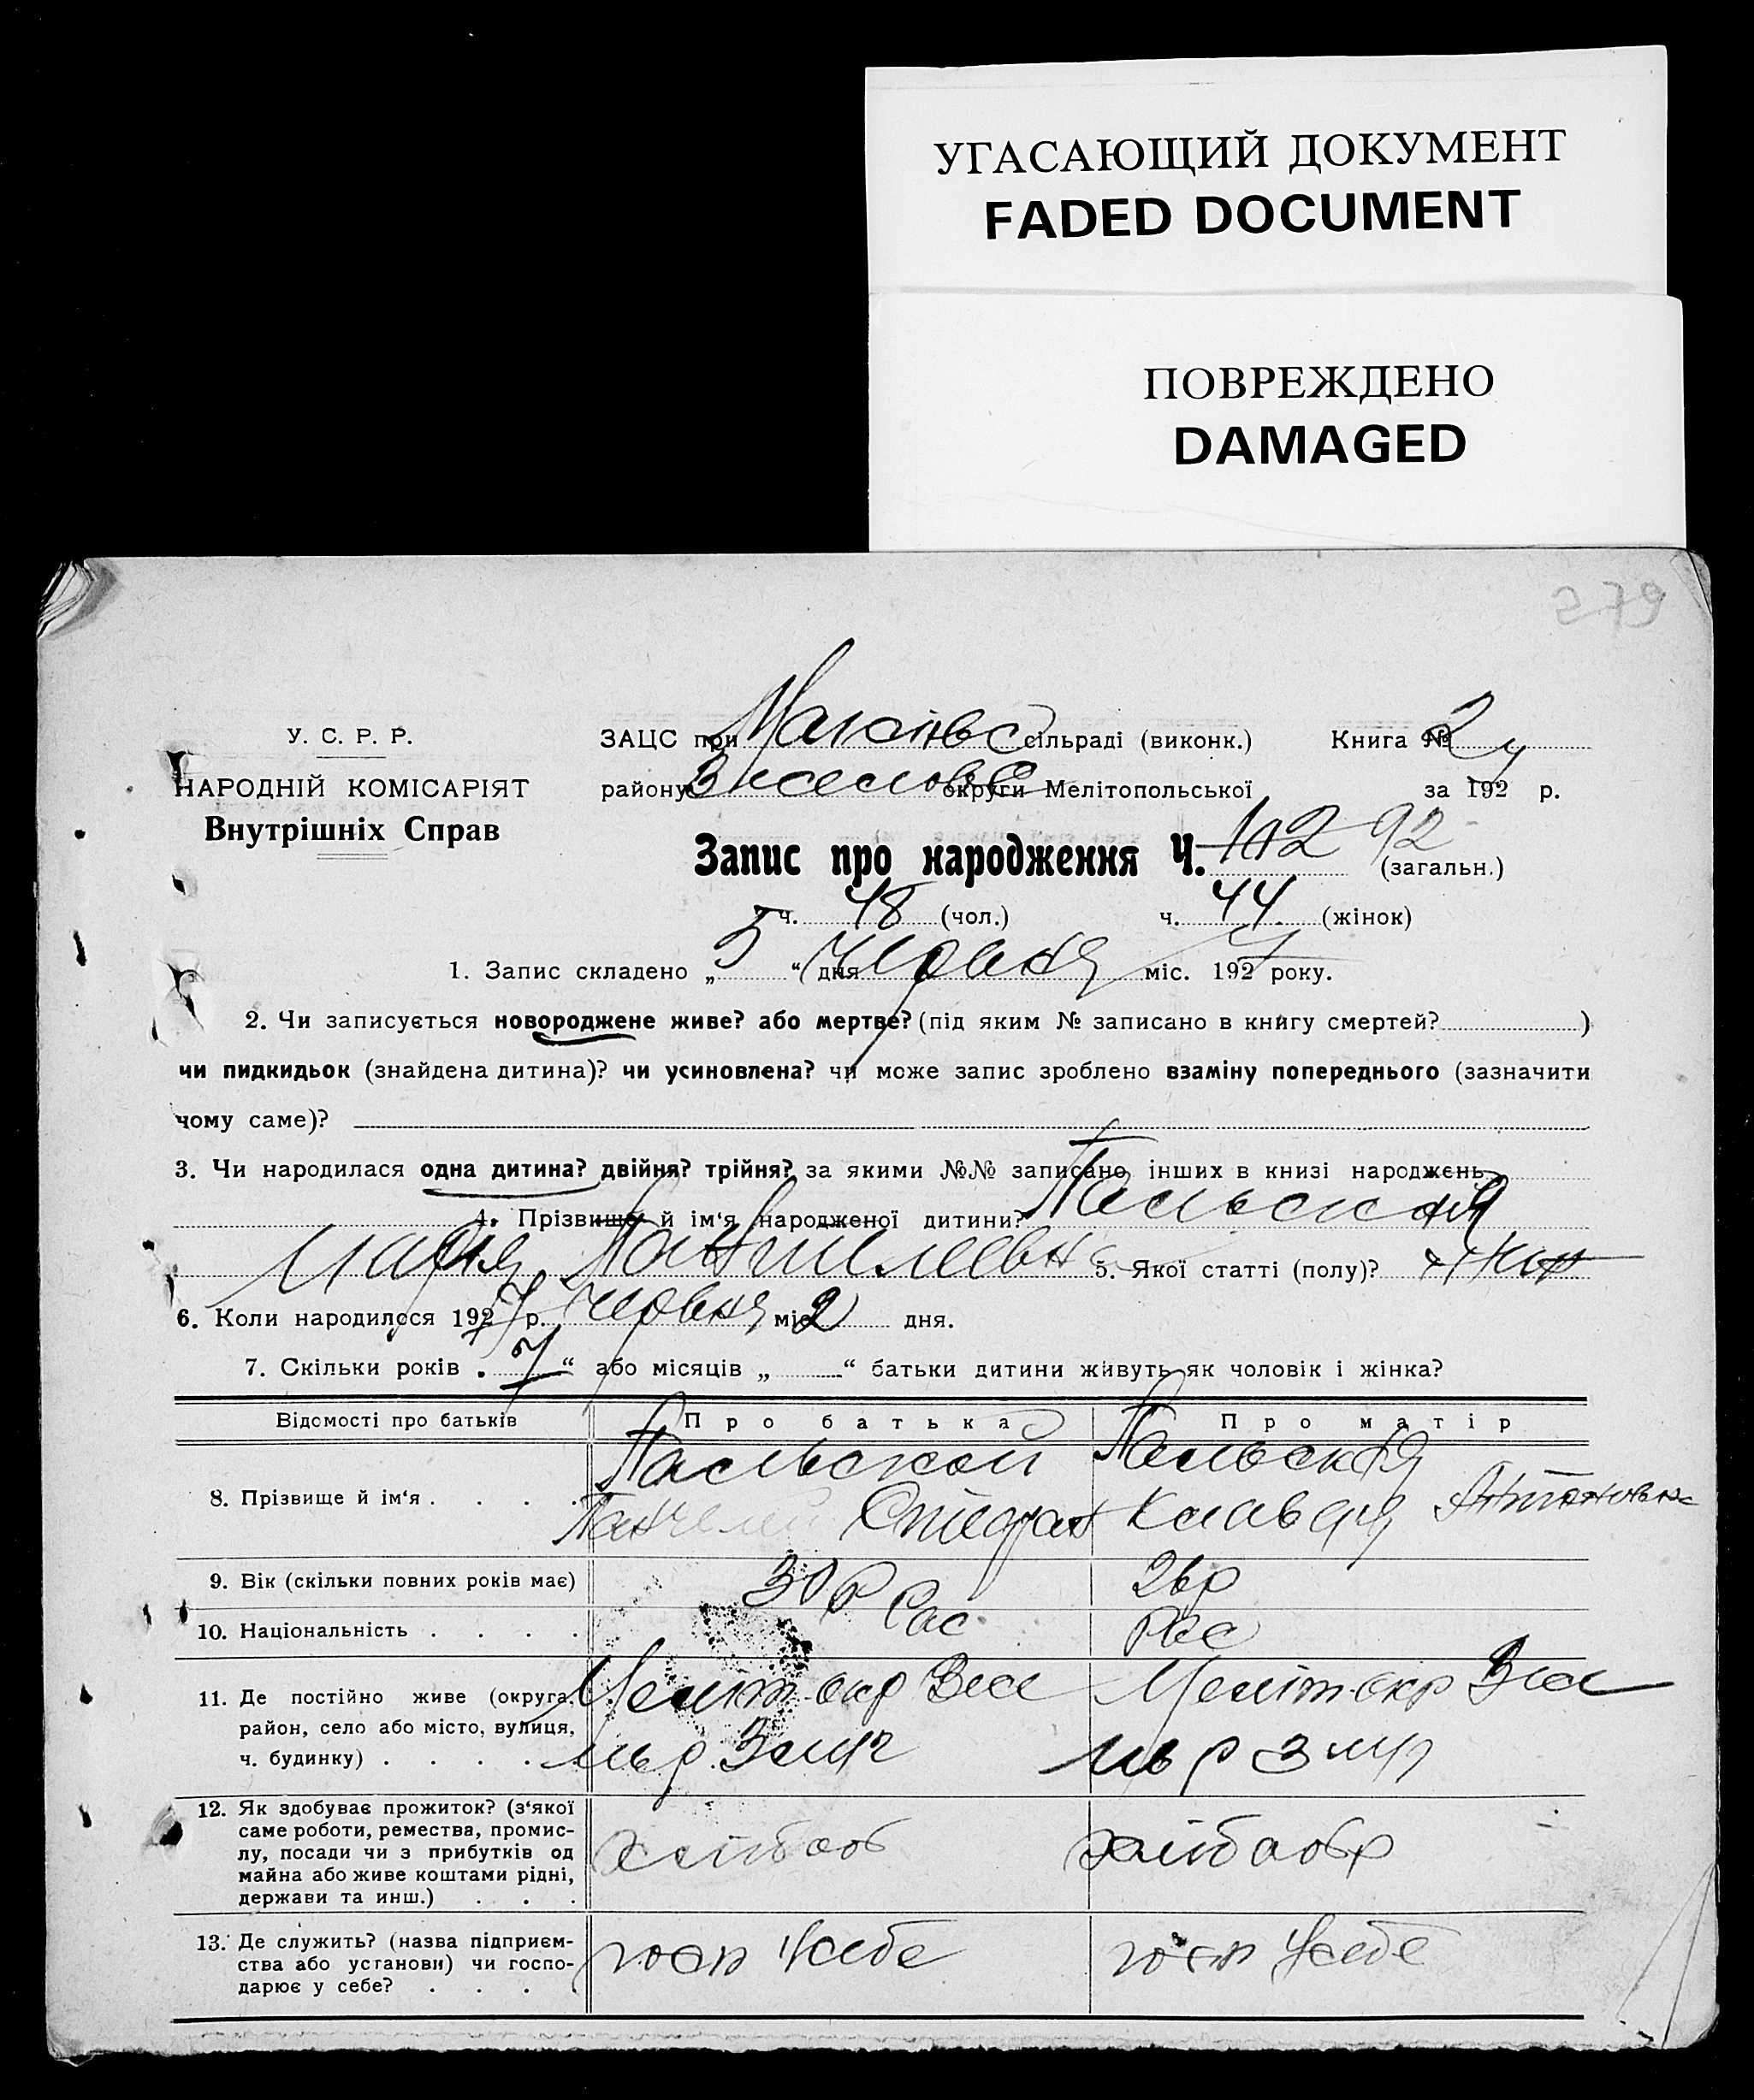 УГАСАЮЩИЙ ДОКУМЕНТ
FADED DOCUMENT
ПОВРЕЖДЕНО
DAMAGED
279
У. С. Р. Р.
НАРОДНІЙ КОМІСАРІЯТ
Внутрішніх Справ
ЗАЦС при сільраді (виконк.) Книга № 2
району округи Мелітопольської за 192 р.
Запис про народження Ч. 102 92 (загальн.)
ч. 48 (чол.) ч. 44 (жінок)
1. Запис складено „ 5 “ дня Червня міс. 1927 року.
2. Чи записується новороджене живе? або мертве? (під яким № записано в книгу смертей? )
чи пидкидьок (знайдена дитина)? чи усиновлена? чи може запис зроблено взаміну попереднього (зазначити
чому саме)?
3. Чи народилася одна дитина? двійня? трійня? за якими №№ записано інших в книзі народжень
4. Прізвище й ім‘я народженої дитини? Пальская
Марія 5. Якої статті (полу)? жін
6. Коли народилося 1927 р. Червня міс 2 дня.
7. Скільки років „ 7 “ або місяців „ “ батьки дитини живуть як чоловік і жінка?
Відомості про батьків Про батька Про матір
8. Прізвище й ім‘я . . . . Пальской Пальская
Степан Клавдія Антоновна
9. Вік (скільки повних років має) 30 р 26р
10. Національність . . . . Рос Рос
11. Де постійно живе (округа, Меліт окр Вес Меліт окр Вес
район, село або місто, вулиця,
ч. будинку) . . . .
12. Як здобуває прожиток? (з‘якої
саме роботи, ремества, промис-
лу, посади чи з прибутків од
майна або живе коштами рідні,
держави та инш.) . . . хлібороб хлібороб
13. Де служить? (назва підприєм-
ства або установи) чи госпо-
дарює у себе? . . . . госп у себе госп у себе